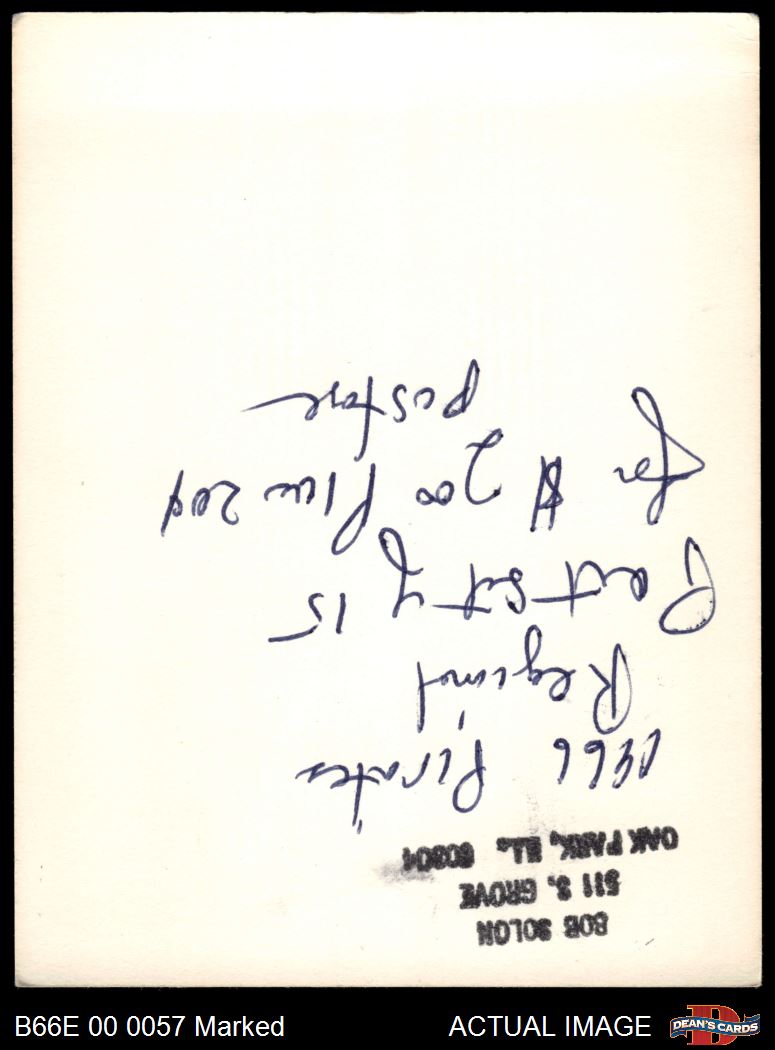 BOB SOLON
511 S. GROVE
OAK PARK, ILL. 60304
1966 Pirates
Regional
Post set of 15
for $2.00 Plus 20¢
postage
B66E 00 0057 Marked
ACTUAL IMAGE
DEAN'S CARDS